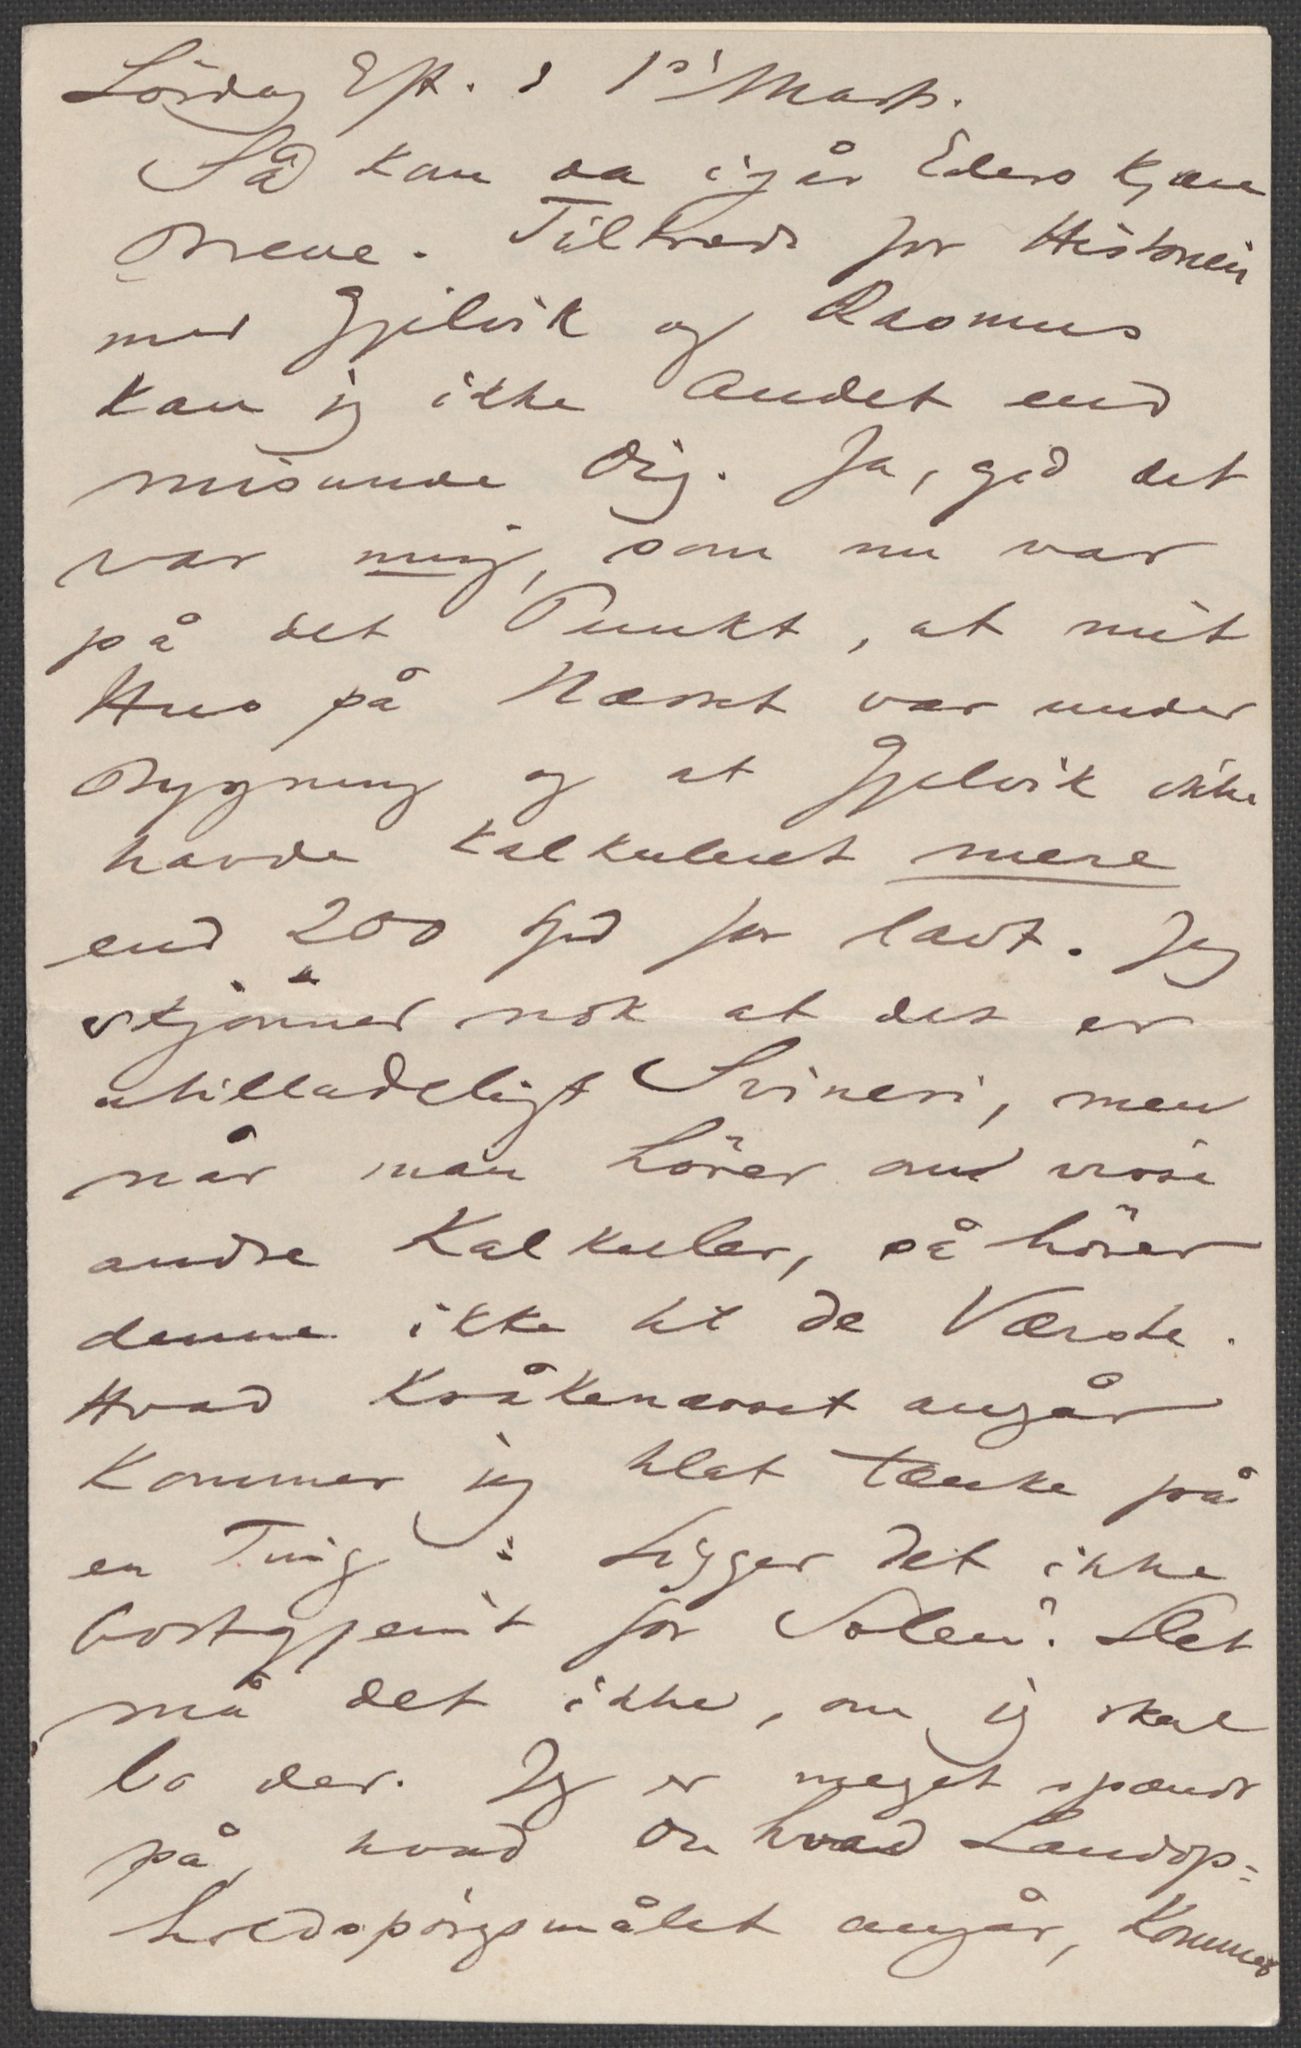 Lördag Eft. d 1st Marts.
Så kom da igår Eders kjære
Breve. Tiltrods for Historien
med Gjelvik og Rasmus
kan jeg ikke Andet end
misunde Dig. Ja, gid det
var mig, som nu var
på det Punkt, at mit
Hus på Næsset var under
Bygning og at Gjelvik ikke
havde kalkuleret mere
end 200 Spd for lavt. Jeg
skjönner nok at det er
utilladeligt Svineri, men
når man hörer om visse
andre Kalkuler, så hörer
denne ikke til de Værste.
Hvad Kråkenæsset angår
kommer jeg til at tænke på
en Ting: Ligger det ikke
bortgjemt for Solen? Det
må det ikke, om jeg skal
bo der. Jeg er meget spændt
på, hvad Du hvad Landop-
holdspörgsmålet angår, kommer